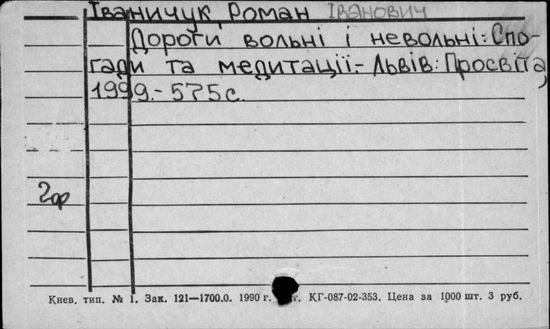 Іваничук Роман Іванович
Дороги вольні і невольні: Спо-
гади та медитації.- Львів: Просвіта,
1999.- 575с.
2ор
Киев. тип. № 1. Зак. 121—1700.0. 1990 г. КГ-087-02-353. Цена за 1000 шт. 3 руб.